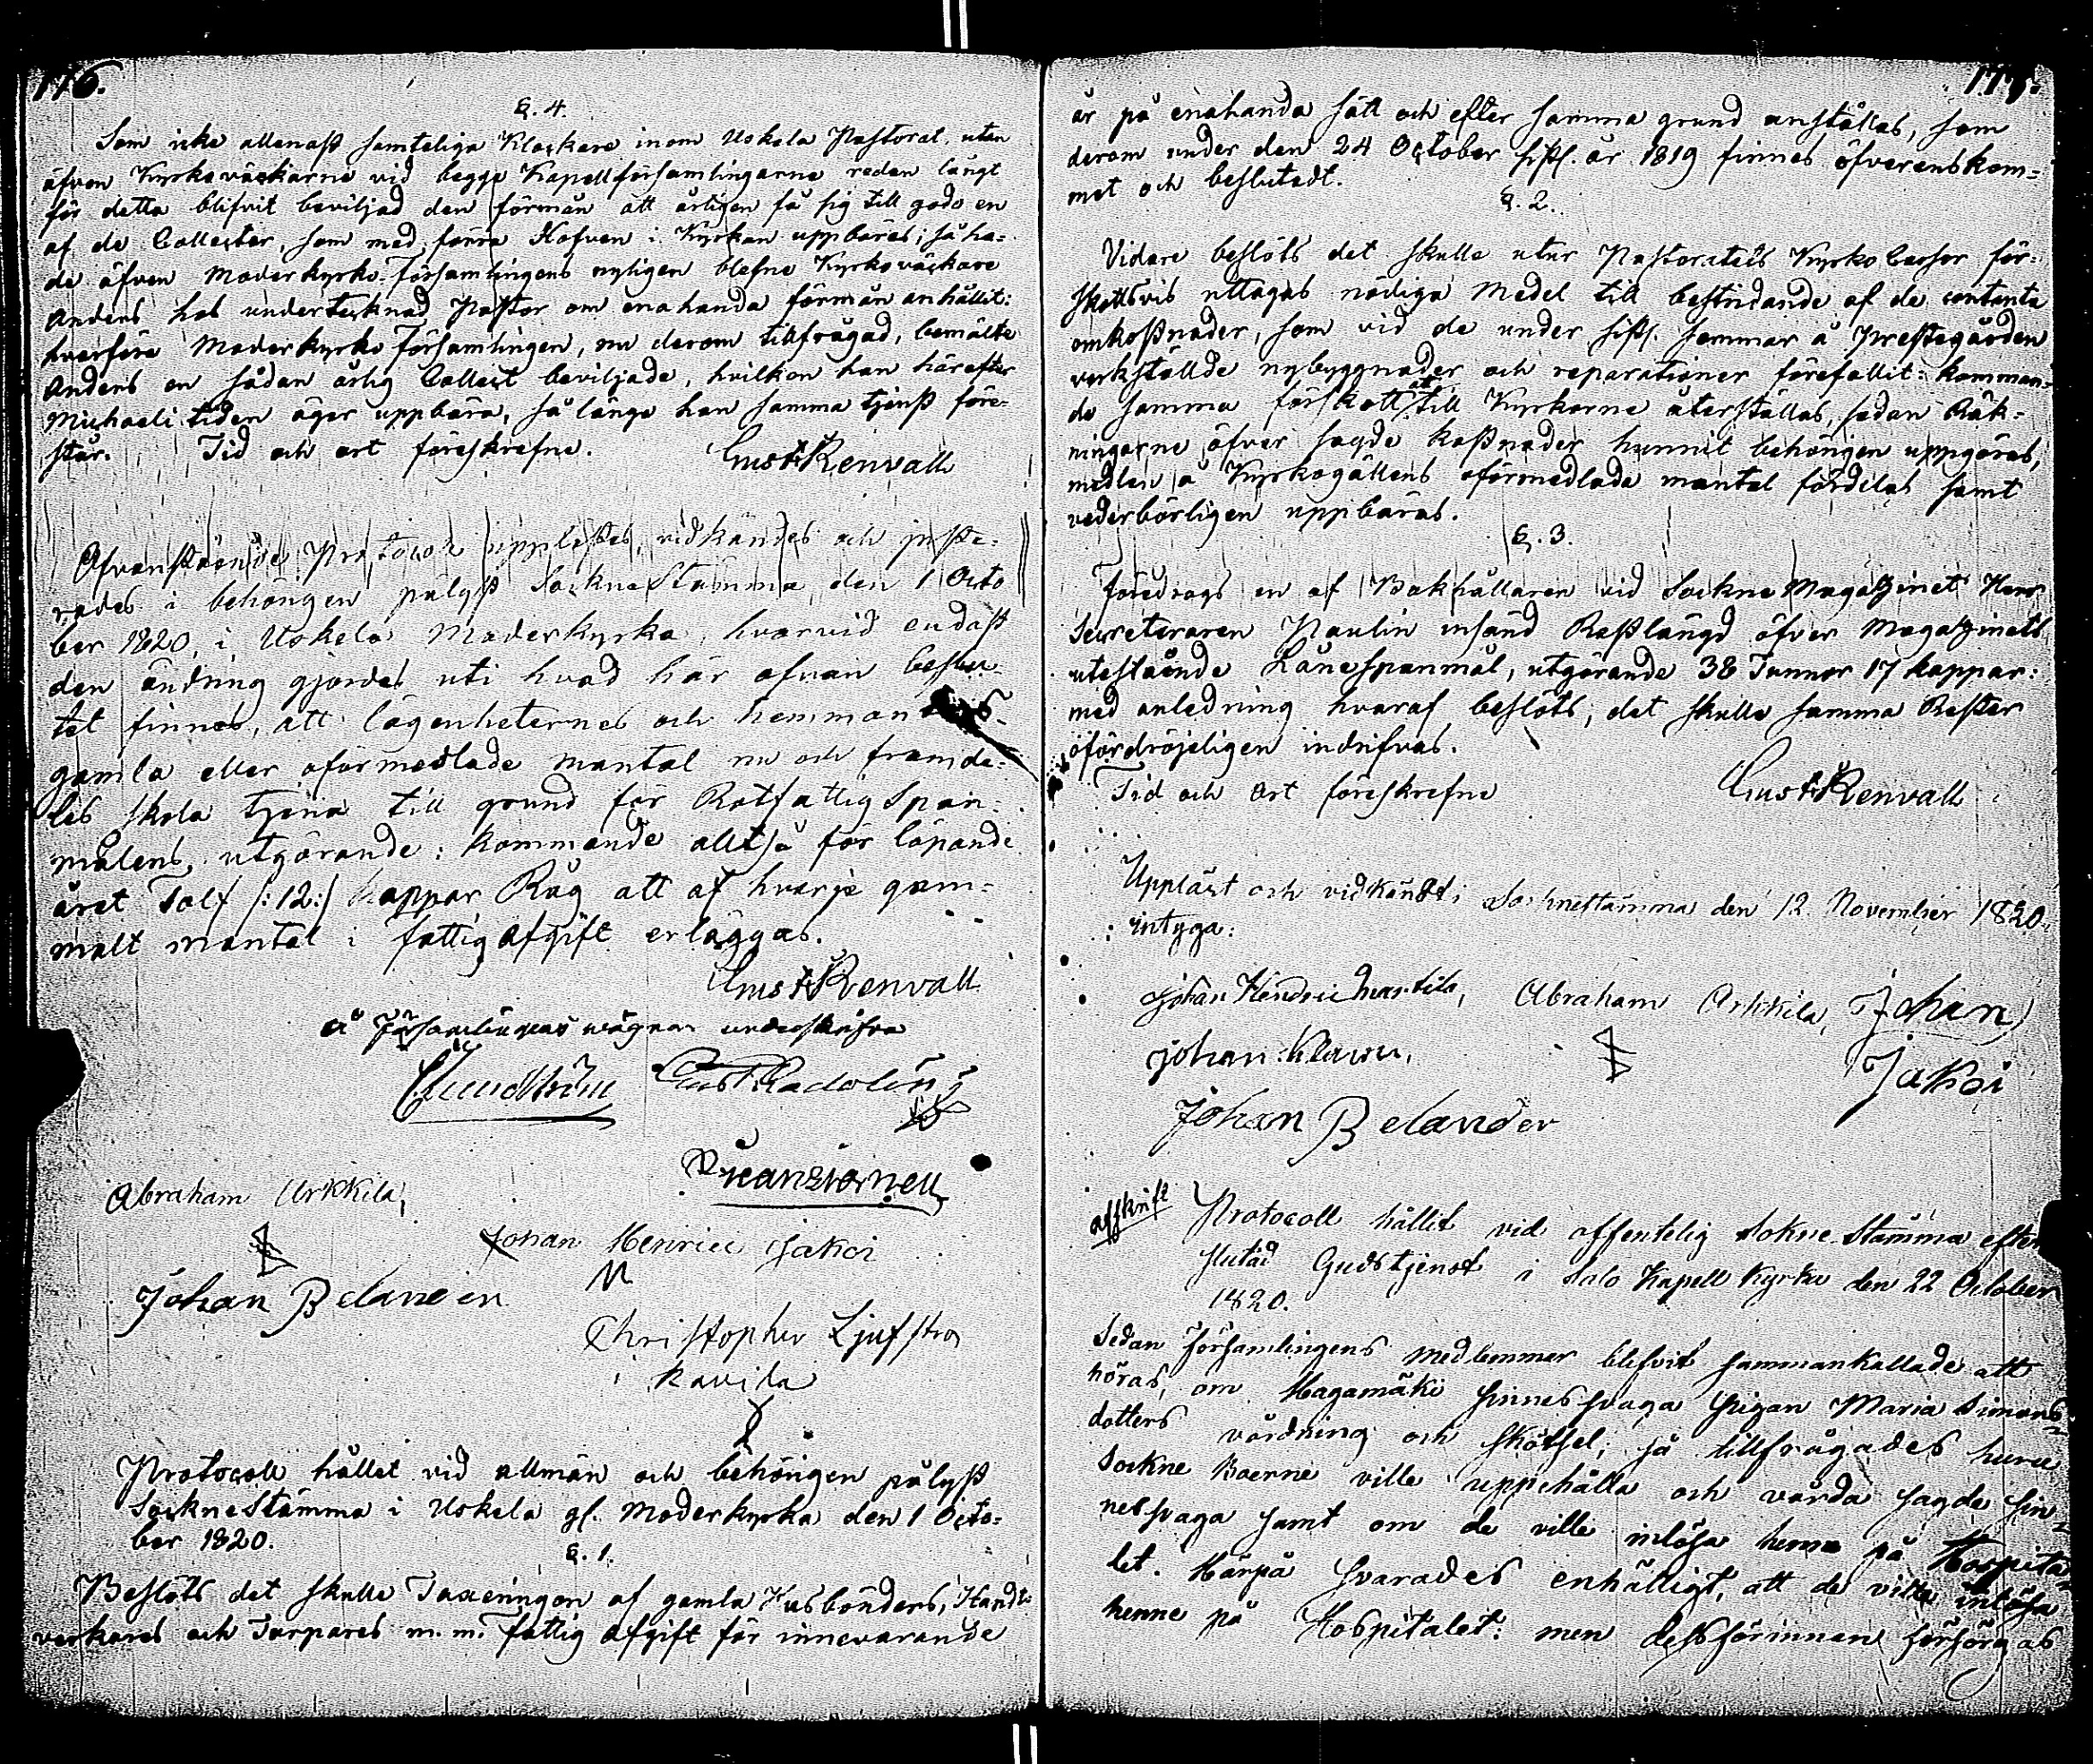 176.
§. 4.
Som icke allenast samteliga Klockare inom Uskela Pastorat, utan
äfven Kyrkoväckarne vid begge Kapellförsamlingarne redan längt
för detta blifvit beviljad den förmån att årligen få sig till godo en
af de Collecter, som med förra Hofven i Kyrkan uppbäres; så ha-
de äfven Moderkyrko-församlingens nyligen blefne Kyrkoväckare
Anders hos undertecknad Pastor om enahanda förmån anhållit:
hvarföre Moderkyrko Församlingen, nu derom tillfrågad, bemälte
Anders en sådan årlig Collect beviljade, hvilken han härefter
Michaeli tiden äger uppbära, så länge han samma tjenst före-
står. Tid och ort föreskrefne.
Gust Renvall
Ofvanstående Protocoll upplästes, vidkändes och juste-
rades i behörigen pålyst SockneStämma den 1 Octo
ber 1820, i Uskela Moderkyrka, hvarvid endast
den ändring gjordes uti hvad här ofvan beslu-
tet finnes, att lägenheternes och hemmanens
gamla eller oförmedlade mantal nu och framde-
les skola tjena till grund för Rotfattig Span-
målens utgörande: kommande alltså för löpande
året Tolf /:12:/ kappar Råg att af hvarje gam-
malt mantal i fattig Afgift erläggas.
Gust Renvall
å Församlingens wägnar underskrifva
Gust Radolin
Abraham Arkkila,
Johan Henric Jakoi
Johan Belander
Christopher Ljufstro
Kavila
Protocoll hållet vid allmän och behörigen pålyst
SockneStämma i Uskela gl. Moderkyrka den 1 Octo-
ber 1820.
§. 1.
Beslöts det skulle Taxeringen af gamla Husbönders, Handt-
verkares och Torpares m. m. Fattig Afgift för innevarande
177.
år på enahanda sätt och efter samma grund anställas, som
derom under den 24 October sistl. år 1819 finnes öfverenskom-
met och beslutadt.
§. 2.
Vidare beslöts det skulle utur Pastoratets Kyrko Cassor för-
skottsvis uttagas nödiga Medel till bestridande af de contanta
omkostnader, som vid de under sistl. sommar å Prestegården
verkställde nybyggnader och reparationer förefallit: komman-
de samma förskott att till Kyrkorne återställas, sedan Räk-
ningarne öfver sagde kostnader hunnit behörigen uppgöras,
medlen å Kyrkogällens oförmedlade mantal fördelas samt
vederbörligen uppbäras.
§. 3.
Föredrogs en af Bokhållaren vid Sockne Magazinet Herr
Secreteraren Paulin insänd Restlängd öfver Magazinets
utestående Lånespanmål, utgörande 38 Tunnor 17 kappar:
med anledning hvaraf beslöts, det skulle samma Rester
ofördröjeligen indrifvas.
Tid och Ort föreskrefne
Gust Renvall
Uppläst och vidkändt i Socknestämma den 12 November 1820.
: intyga:
Johan Hendric Marttila, Abraham Arkkila, Johan
Johan Klavu, Jakoi
Johan Belander
afskrift
Protocoll hållit vid offentelig Sokne-Stämma efter
slutad Gudstjenst i Salo Kapell Kyrka den 22 October
1820.
Sedan Församlingens medlemmar blifvit sammankallade att
höras, om Hagamäki sinnessvaga pigan Maria Simons-
dotters vårdning och skötsel; så tillfrågades huru
Sockne Boerne ville uppehålla och vårda sagde sin-
nessvaga samt om de ville inlösa henne på Hospita-
let. Härpå svarades enhälligt, att de ville inlösa
henne på Hospitalet: men dessförinnan försörjas